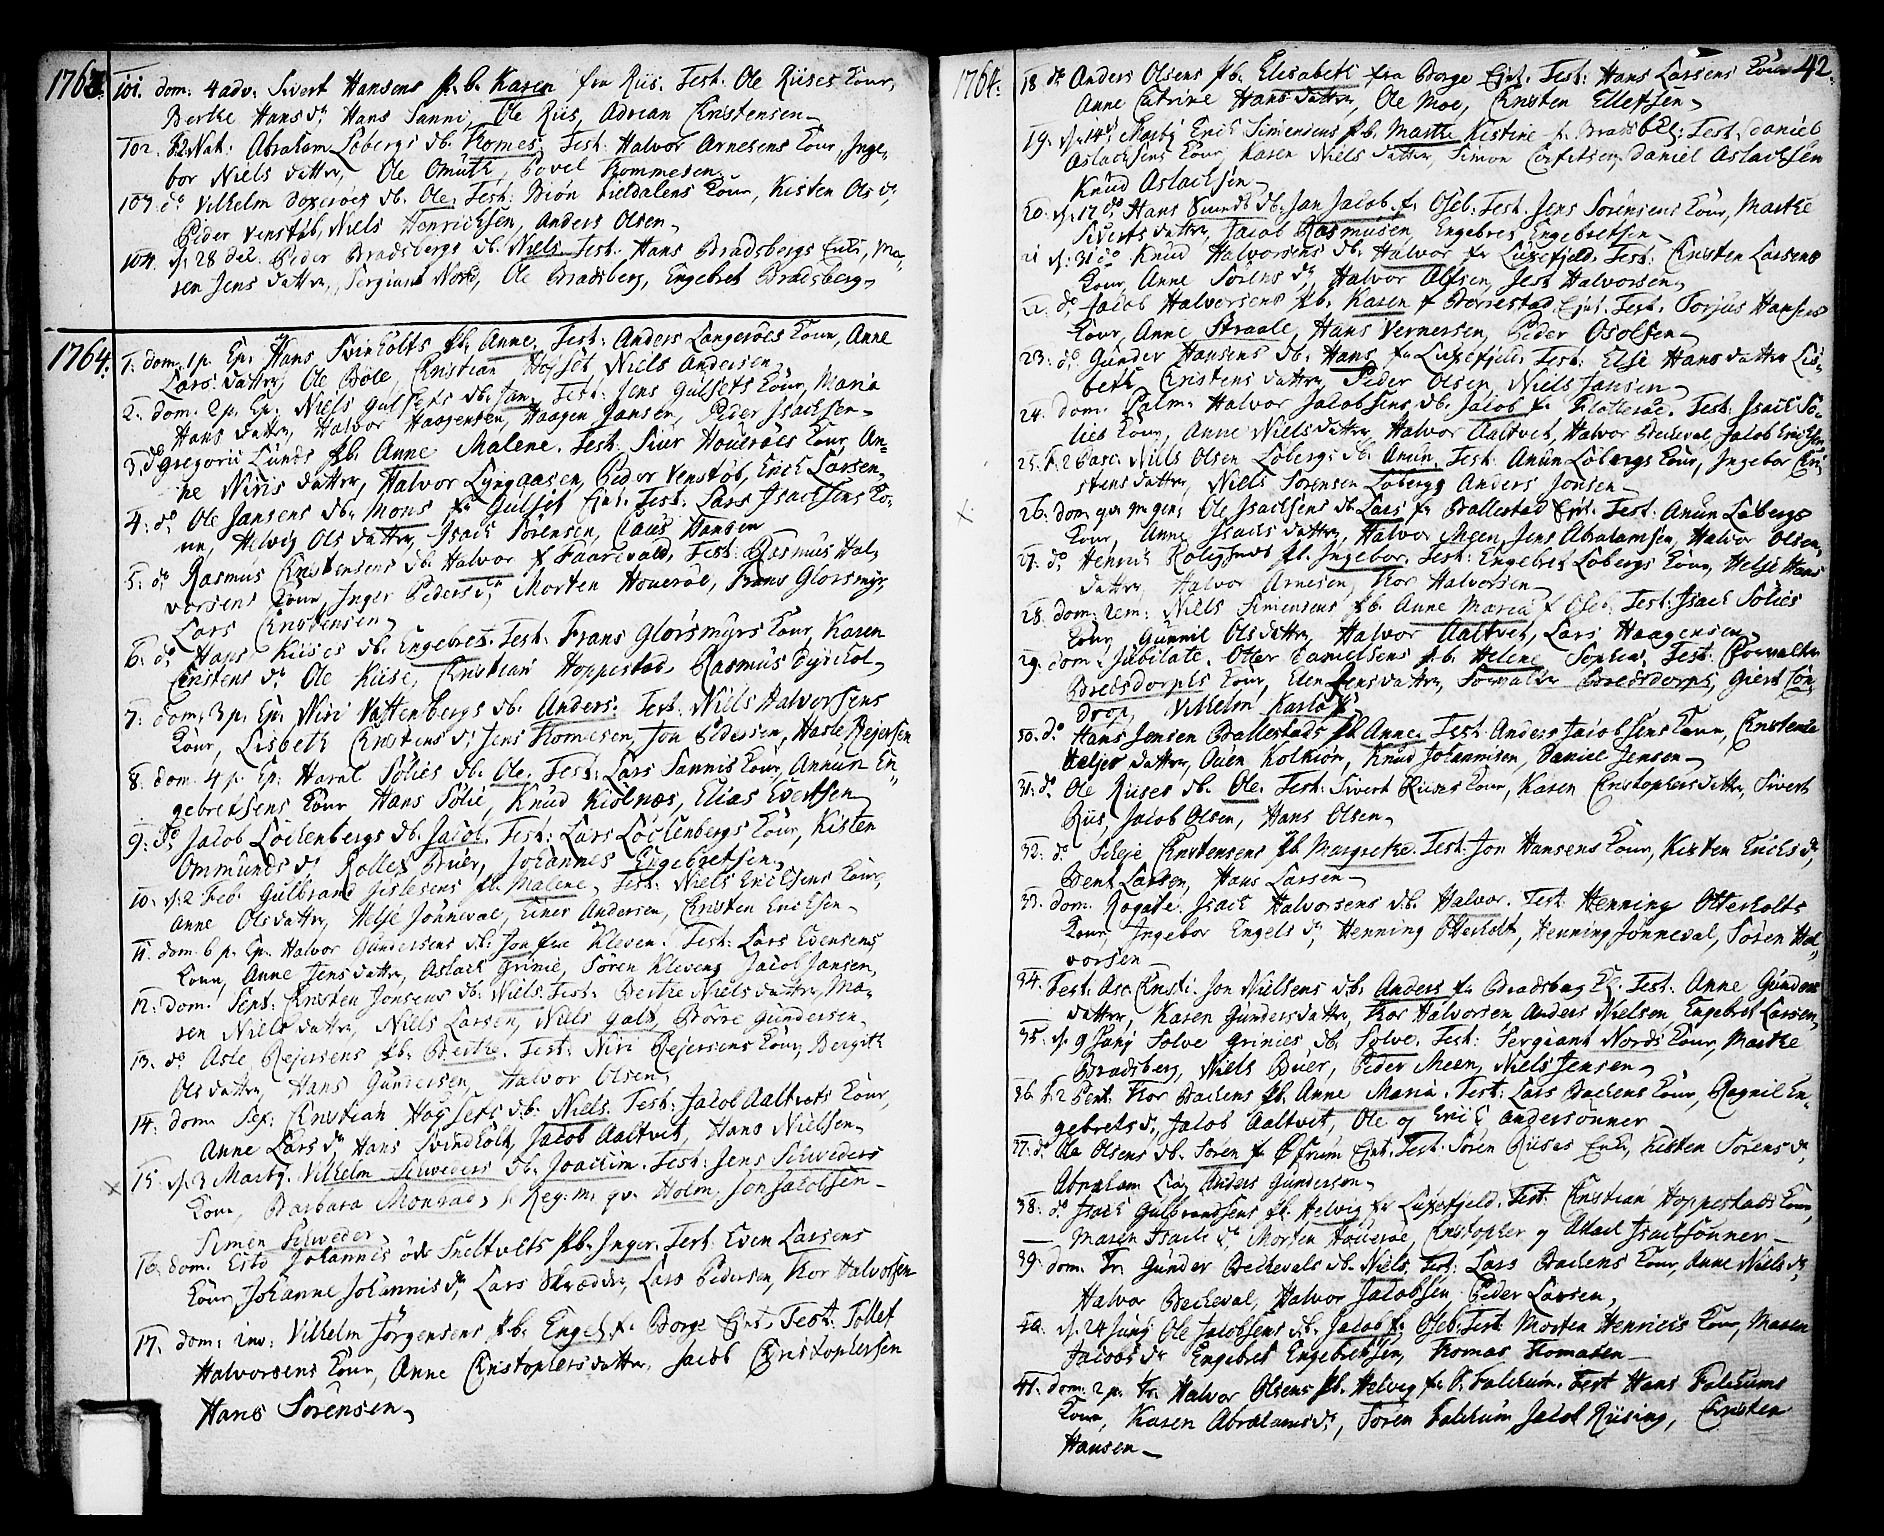 1763.
101. dom: 4 adv: Sivert Hansens p.b. Karen fra Riis. Test: Ole Riises Kone,
Berthe Hans dr Hans Sanni, Ole Riis, Adrian Christensen
102. F.2 Nat: Abraham Løbergs db. Thomes. Test: Halvor Arnesens Kone, Inge-
bor Niels datter, Ole Omuth, Povel Thommesen
103. do Vilhelm db. Ole. Test: Biøn Kone, Kisten Ols dr,
Peder Venstøb, Niels Henrichsen, Anders Olsen
104. d. 28 dec. Peder Bradsbergs db. Niels Test: Hans Bradsbergs Enke, Ma-
ren Jens datter, Sergiant Nord, Ole Bradsberg, Engebret Bradsberg
1764.
1. dom. 1 p. Ep. Hans Svinholts pb. Anne. Test: Anders Langerøes Kone, Anne
Lars datter, Ole Bøle, Christian Høyset Niels Andersen
2. dom. 2 p. Ep. Niels Gulsets db. Jan. Test: Jens Gulsets Kone, Maria
Hans datter, Halvor Haagensen, Haagen Jansen, Peder Isachsen
3. do Gregorii Lunds pb. Anne Malene. Test: Siur Houerøes Kone, An-
ne Niris datter, Halvor Lyngaasen, Peder Venstøb, Erich Larsen
4. do Ole Jansens db. Mons fr Gulset Test: Lars Isachsens Ko-
ne, Helvig Ols datter, Isach Sørensen, Claus Hansen
5. do Rasmus Christensens db. Halvor f. Faarevald, Test: Rasmus Hal-
vorsens Kone, Inger Peders dr Morten Houerøe, Frans Glorsmyr,
Lars Christensen
6. do Hans Riises db. Engebret. Test: Frans Glorsmyrs Kone, Karen
Christens dr Ole Riise, Christian Hoppestad, Rasmus Dyrkol
7. dom. 3 p. Ep. Niri Vattenbergs db. Anders. Test: Niels Halvorsens
Kone, Lisbeth Christens dr, Jens Thomesen, Jon Pedersen, Hasle Rejersen
8. dom. 4 p. Ep. Haral Sølies db. Ole. Test: Lars Sannis Kone, Annun En-
gebretsens Kone Hans Sølie, Knud Kiølnæs, Elias Evertsen
9. do Jacob Lochenbergs db. Jacob. Test: Lars Lochenbergs Kone, Kisten
Ommunds dr, Rollef Buer, Johannes Engebretsen
10. d. 2 Feb: Gulbrand Gislesens pb. Malene. Test: Niels Erichsens Kone,
Anne Olsdatter, Helje Jønneval, Einer Andersen, Christen Erichsen
11. dom. 6 p. Ep. Halvor Gundersens db. Jon fra Kleven. Test: Lars Evensens
Kone, Anne Jensdatter, Aslach Grinie, Søren Kleveng Jacob Jansen,
12. dom. Sept: Christen Jonsens db. Niels. Test: Berthe Niels datter, Ma-
ren Niels datter, Niels Larsen, Niels Galt, Børre Gundersen
13. do Asle Rejersens pb. Berthe. Test: Niri Rejersens Kone, Bergith
Ols datter, Hans Gundersen, Halvor Olsen
14. dom. Sex. Christian Høysets db. Niels. Test: Jacob Aaltvets Kone,
Anne Lars dr Hans Svindholt, Jacob Aaltvet, Hans Nielsen
15. d. 3 Marty. Vilhelm Schweders db. Joachim. Test: Jens Schweders
Kone, Barbara Monrad, Reg: m: qv. Holm, Jon Jacobsen
Simen Schweder
16. dom. Esto Johannis Sneltvets pb. Inger. Test: Even Larsens
Kone, Johanne Johannis dr, Lars Skrædder, Lars Pedersen, Thor Halvorsen
17. dom: inv: Vilhelm Jørgensens pb. Engel fr Borge Ejnt. Test: Tollef
Halvorsens Kone, Anne Christophersdatter, Jacob Christophersen
Hans Sørensen
42.
1764.
18. do Anders Olsens pb. Elisabeth fra Borge Ejnt. Test: Hans Larsens Kone
Anne Catrine Hans datter, Ole Moe, Christen Ellefsen
19. d. 14 Marty Erich Simensens pb. Marthe Kistine f. Bradsb: Test: Daniel
Aslachsens Kone, Karen Niels datter, Simon Daniel Aslachsen
Knud Aslachsen
20. d. 17 do Hans Knuds db. Jan Jacob fr Oseb. Test: Jens Sørensens Kone, Marthe
Siverts datter, Jacob Rasmusen, Engebret Engebretsen
21 d. 31 do Knud Halvorsens db. Halvor fr Luxefjeld. Test: Christen Larsens
Kone, Anne Sørens dr, Halvor Olsen, Jest Halvorsen
22. do Jacob Halvorsens pb. Karen f Borrestad Ejnt. Test: Torjus Hansens
Kone, Anne Straale, Hans Vernersen, Peder Osolsen
23. do Gunder Hansens db. Hans fr Luxefjeld. Test: Else Hans datter Lis-
beth Christens datter, Peder Olsen, Niels Jansen
24. dom. Palm: Halvor Jacobsens db. Jacob fr Flotterøe. Test: Isach Sø-
lies Kone, Anne Niels datter, Halvor Aaltvet, Halvor Becheval Jacob Erichsen
25. F. 2 Pasc. Niels Olsen Løbergs db. Anun. Test: Anun Løbergs Kone, Ingebor Chri-
stensdatter, Niels Sørensen Løberg Anders Jonsen
26. dom: qv: m: gen: Ole Isachsens db. Lars fr Ballestad Ejnt. Test: Anun Løbergs
Kone, Anne Isachs datter, Halvor Meen, Jens Abrahamsen, Halvor Olsen,
27. do Henrich pb. Ingebor. Test: Engebret Løbergs Kone, Helje Hans
datter, Halvor Arnesen, Thor Halvorsen
28. dom: 2em: Niels Simensens pb. Anne Maria f Oseb. Test: Isach Sølies
Kone, Gunnil Olsdatter, Halvor Aaltvet, Lars Haagensen
29. dom: Jubilate. Otter Danielsens pb. Helene Sophia. Test: Thorvalds
Bredsdorphs Kone, Elen Jensdatter, Torvalds Bredsdorphs, Giert Con-
drop, Vilhelm Karlof
30. do Hans Jensen Ballestads pb. Anne. Test: Anders Jacobsens Kone, Christence
Heljes datter, Ouen Kolkiøn, Knud Johannisen, Daniel Jensen
31. do Ole Riises db. Ole. Test: Sivert Riises Kone, Karen Christophersdatter, Sivert
Riis, Jacob Olsen, Hans Olsen
32. do Christensens pb. Margrethe. Test: Jon Hansens Kone, Kisten Erichs dr,
Bent Larsen, Hans Larsen
33. dom. Rogate. Isach Halvorsens db. Halvor. Test: Henning Otterholts
Kone, Ingebor Engels dr, Henning Otterholt, Henning Jønneval, Søren Hal-
vorsen
34. Fest: Asc: Christi. Jon Nielsens db. Anders fr Bradsberg E. Test: Anne Gunders
datter, Karen Gunders datter, Thor Halvorsen Anders Nielsen Engebret Larsen,
35. d. 9 Junj Solve Grinies db. Solve. Test: Sergiant Nords Kone, Marthe
Bradsberg, Niels Buer, Peder Meen, Niels Jensen
36. F. 2 Pent. Thor Bachens pb. Anne Maria. Test: Lars Bachens Kone, Ragnil En-
gebrets dr, Jacob Aaltvet, Ole og Erich andersønner
37. do Ole Olsens db. Søren f. Ejnt. Test: Søren Riises Enke, Kisten Sørens dr,
Abraham Anders Gundersen
38. do Isach Gulbrandsens pb. Helvig fr Luxefjeld. Test: Christian Hoppestads Kone,
Maren Isachs dr Morten Houerøe, Christopher og Aslach Isachsønner
39. dom. Tr: Gunder Bechevals db. Niels. Test: Lars Bachens Kone, Anne Niels dr,
Halvor Becheval, Halvor Jacobsen Peder Larsen,
40. d. 24 Junij Ole Jacobsens db. Jacob fr Oseb. Test: Morten Henrichs Kone, Maren
Jacobs dr Engebret Engebretsen, Thomas Thomasen
41. dom: 2 p. Tr. Halvor Olsens pb. Helvig fr Ø. Falchum. Test Hans Falchums
Kone, Karen Abrahams dr, Søren Falchum Jacob Riising, Christen
Hansen